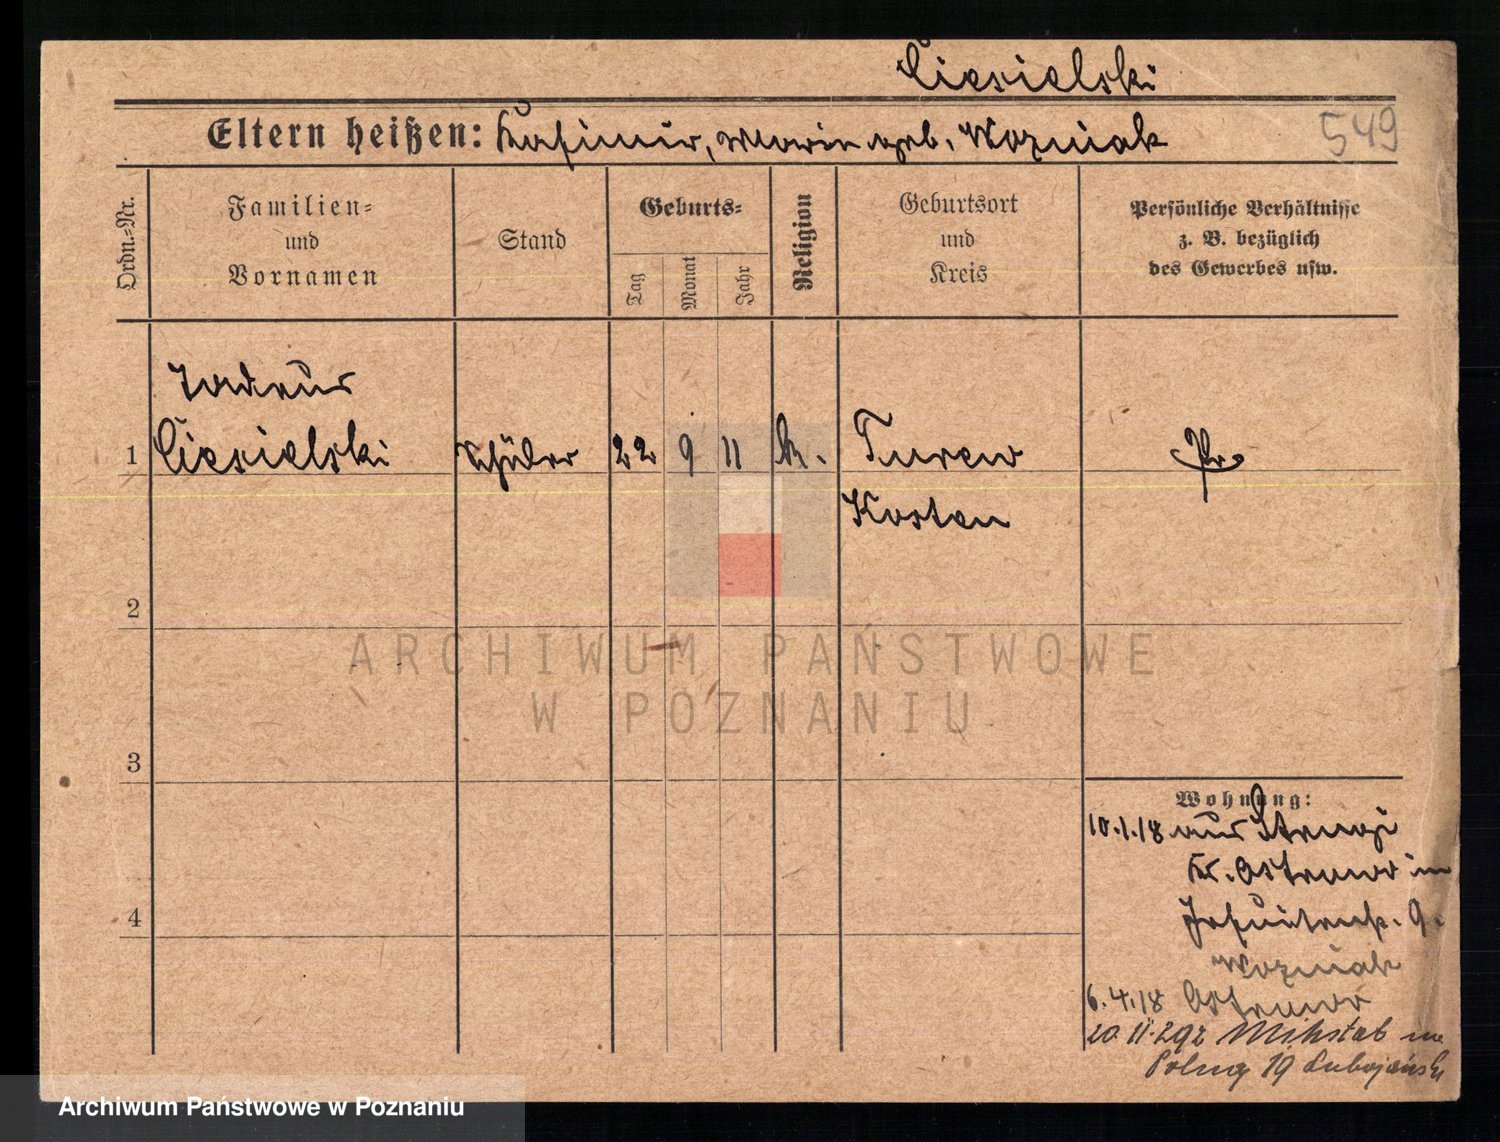 Ciesielski
Eltern heißen: Kasimir, Marie geb. Wozniak
549
Ordn.=Nr.
Familien= und Vornamen
Stand
Geburts=
Tag
Monat
Jahr
Religion
Geburtsort und Kreis
Persönliche Verhältnisse z. B. bezüglich des Gewerbes usw.
Tadeus
1 Ciesielski Schüler 22 9 11 k. Turew Pr
Kosten
2
3
4
Wohnung:
10.1.18 aus
Kr. Ostrowo in
Jesuitenstr. 9.
Wozniak
6.4.18 Ostrowo
20 11 Mikstat
19
ARCHIWUM PAŃSTWOWE
W POZNANIU
Archiwum Państwowe w Poznaniu